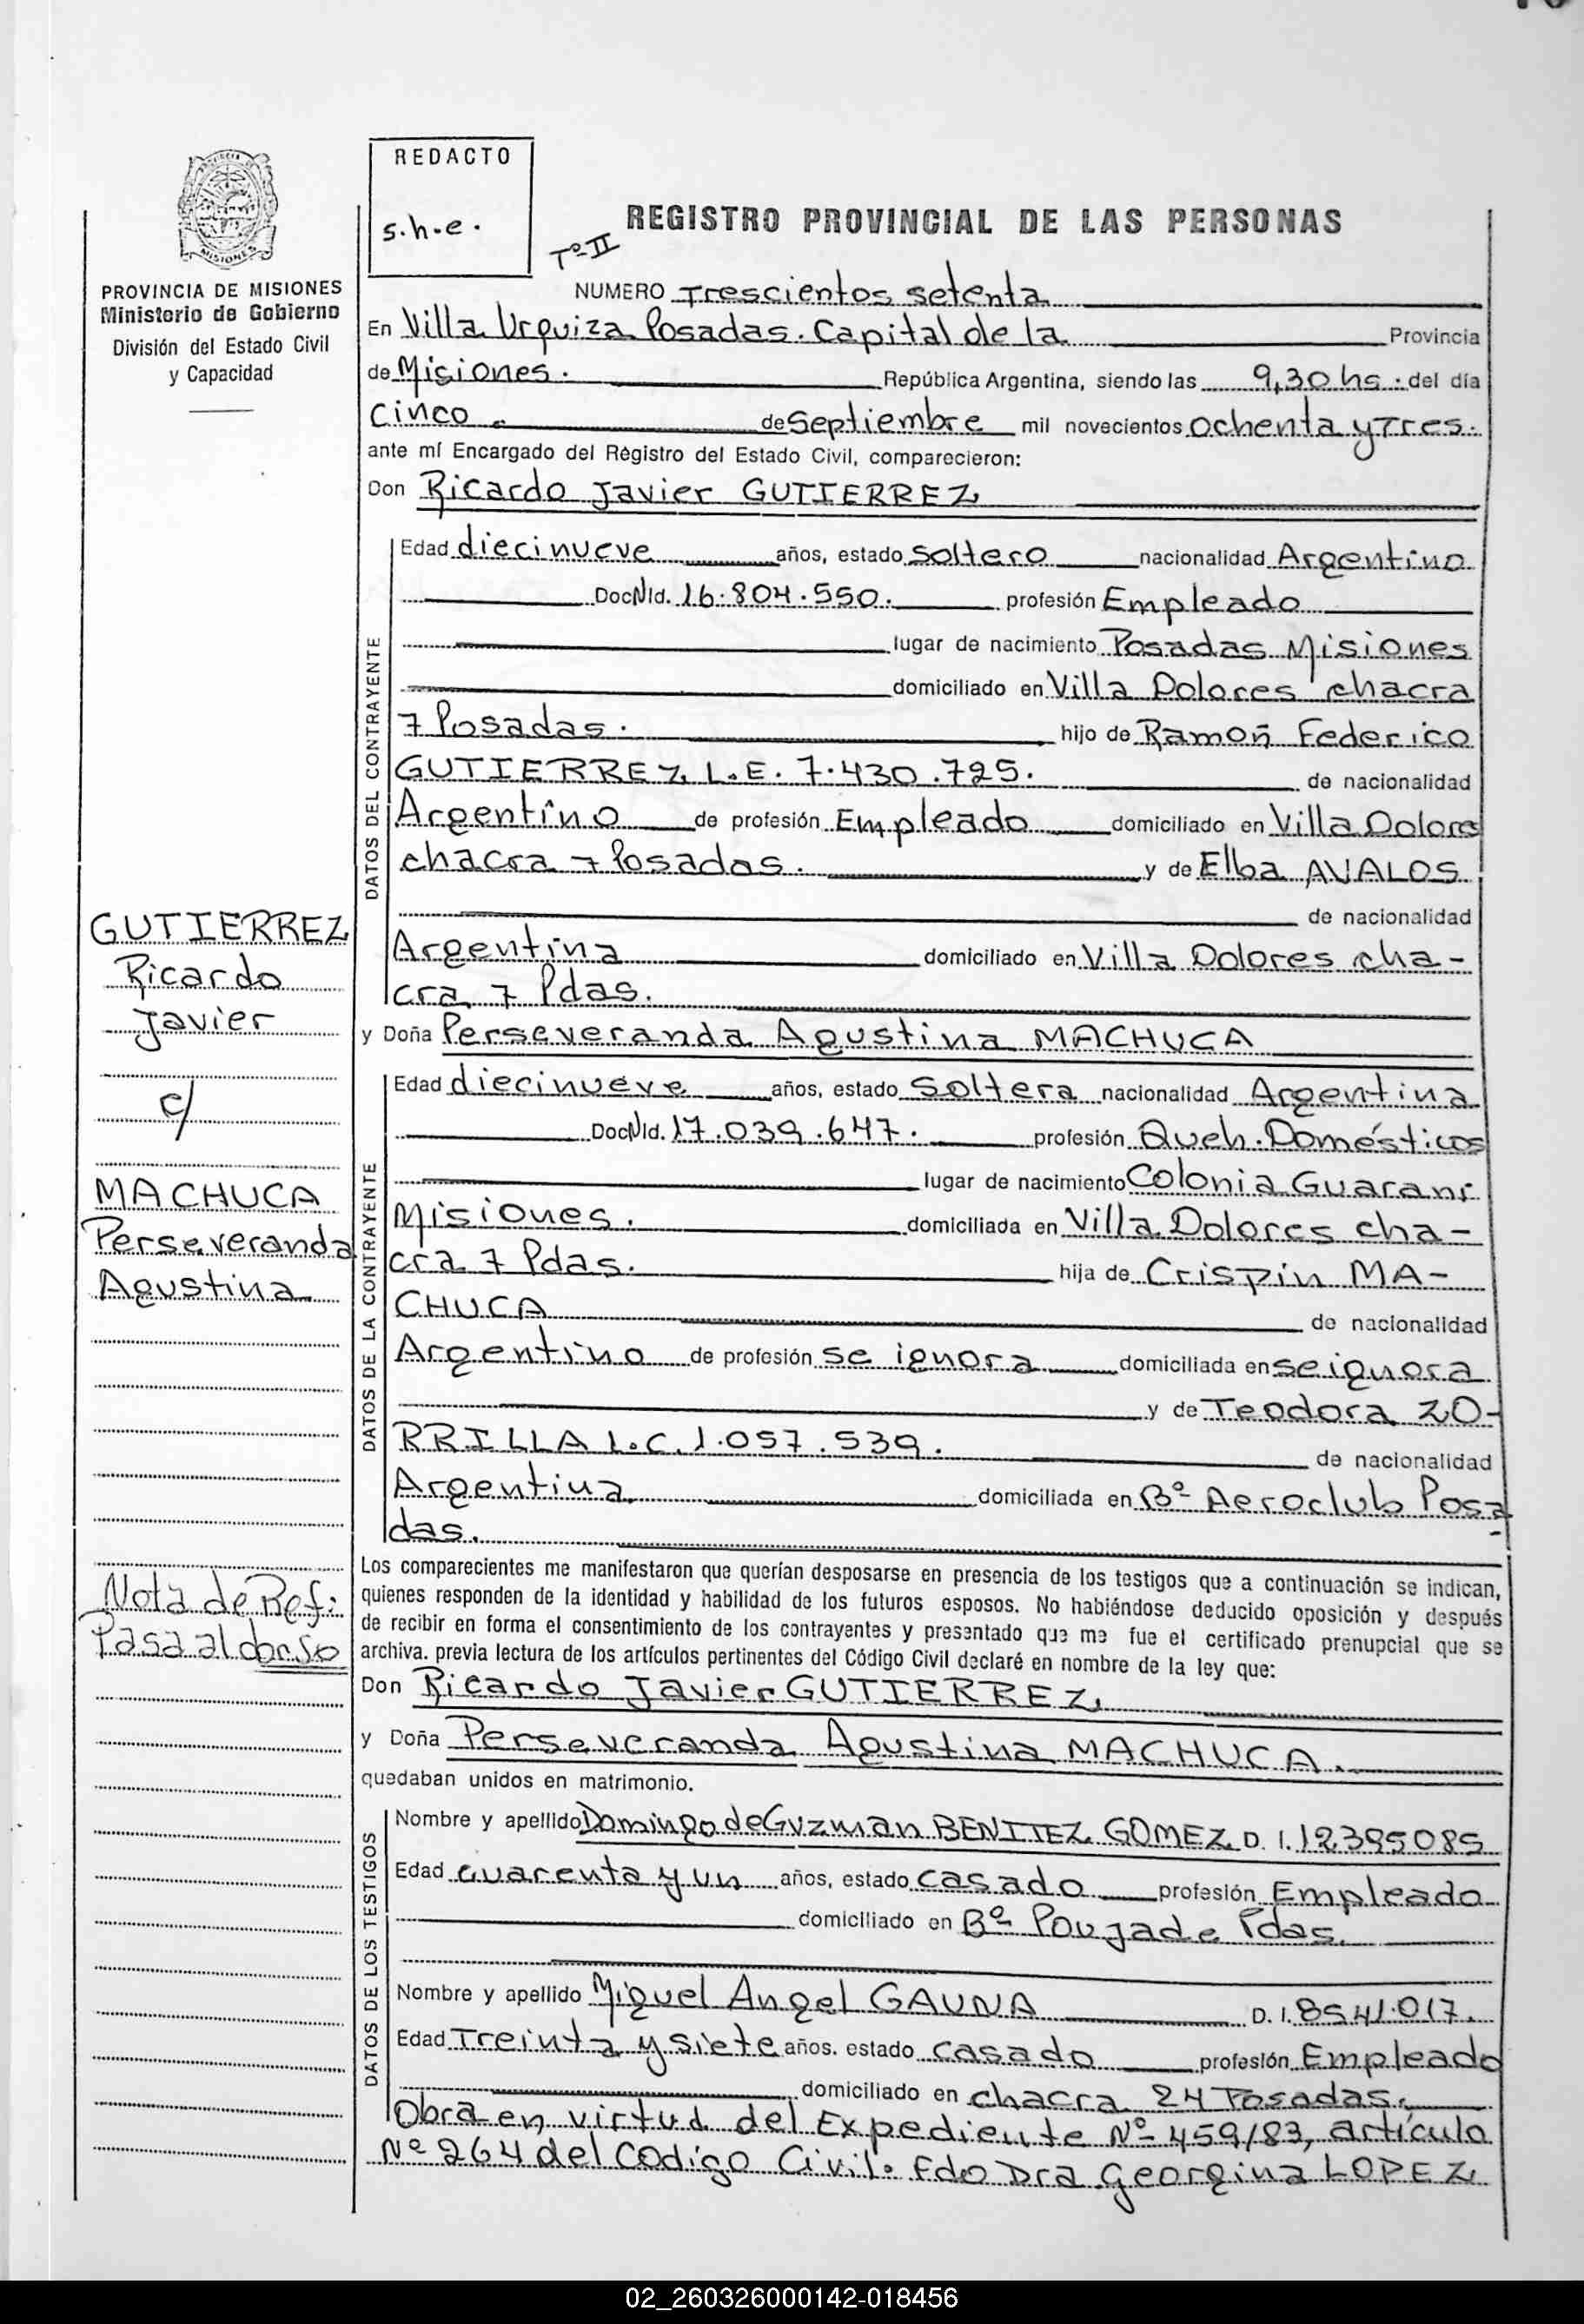 REDACTO
s.h.e.
MISIONES
PROVINCIA DE MISIONES
Ministerio de Gobierno
División del Estado Civil
y Capacidad
REGISTRO PROVINCIAL DE LAS PERSONAS
Tº II
NUMERO Trescientos setenta
En Villa Urquiza Posadas. Capital de la Provincia
de Misiones. República Argentina, siendo las 9,30 hs. del día
cinco de Septiembre mil novecientos ochenta y Tres.
ante mí Encargado del Registro del Estado Civil, comparecieron:
Don Ricardo Javier GUTIERREZ
DATOS DEL CONTRAYENTE
Edad diecinueve años, estado soltero nacionalidad Argentino
Doc NId. 16.804.550. profesión Empleado
lugar de nacimiento Posadas Misiones
domiciliado en Villa Dolores chacra
7 Posadas. hijo de Ramón Federico
GUTIERREZ L.E. 7.430.725. de nacionalidad
Argentino de profesión Empleado domiciliado en Villa Dolores
chacra 7 Posadas. y de Elba AVALOS
de nacionalidad
Argentina domiciliado en Villa Dolores cha-
cra 7 Pdas.
y Doña Perseveranda Agustina MACHUCA
DATOS DE LA CONTRAYENTE
Edad diecinueve años, estado Soltera nacionalidad Argentina
Doc NId. 17.039.647. profesión Queh. Domésticos
lugar de nacimiento Colonia Guaraní
Misiones. domiciliada en Villa Dolores cha-
cra 7 Pdas. hija de Crispín MA-
CHUCA de nacionalidad
Argentino de profesión se ignora domiciliada en se ignora
y de Teodora ZO-
RRILLA L.C. 1.057.539. de nacionalidad
Argentina domiciliada en Bº Aeroclub Posa
das.
Los comparecientes me manifestaron que querían desposarse en presencia de los testigos que a continuación se indican,
quienes responden de la identidad y habilidad de los futuros esposos. No habiéndose deducido oposición y después
de recibir en forma el consentimiento de los contrayentes y presentado que me fue el certificado prenupcial que se
archiva. previa lectura de los artículos pertinentes del Código Civil declaré en nombre de la ley que:
Don Ricardo Javier GUTIERREZ
y Doña Perseveranda Agustina MACHUCA.
quedaban unidos en matrimonio.
DATOS DE LOS TESTIGOS
Nombre y apellido Domingo de Guzman BENITEZ GOMEZ D. I. 12395085
Edad cuarenta y un años, estado casado profesión Empleado
domiciliado en Bº Poujade Pdas.
Nombre y apellido Miguel Angel GAUNA D. I. 8541.017.
Edad Treinta y siete años. estado casado profesión Empleado
domiciliado en chacra 24 Posadas.
Obra en virtud del Expediente Nº 459/83, artículo
Nº 264 del Código Civil. Fdo Dra Georgina LOPEZ
GUTIERREZ
Ricardo
Javier
c/
MACHUCA
Perseveranda
Agustina
Nota de Ref:
Pasa al dorso
02_260326000142-018456